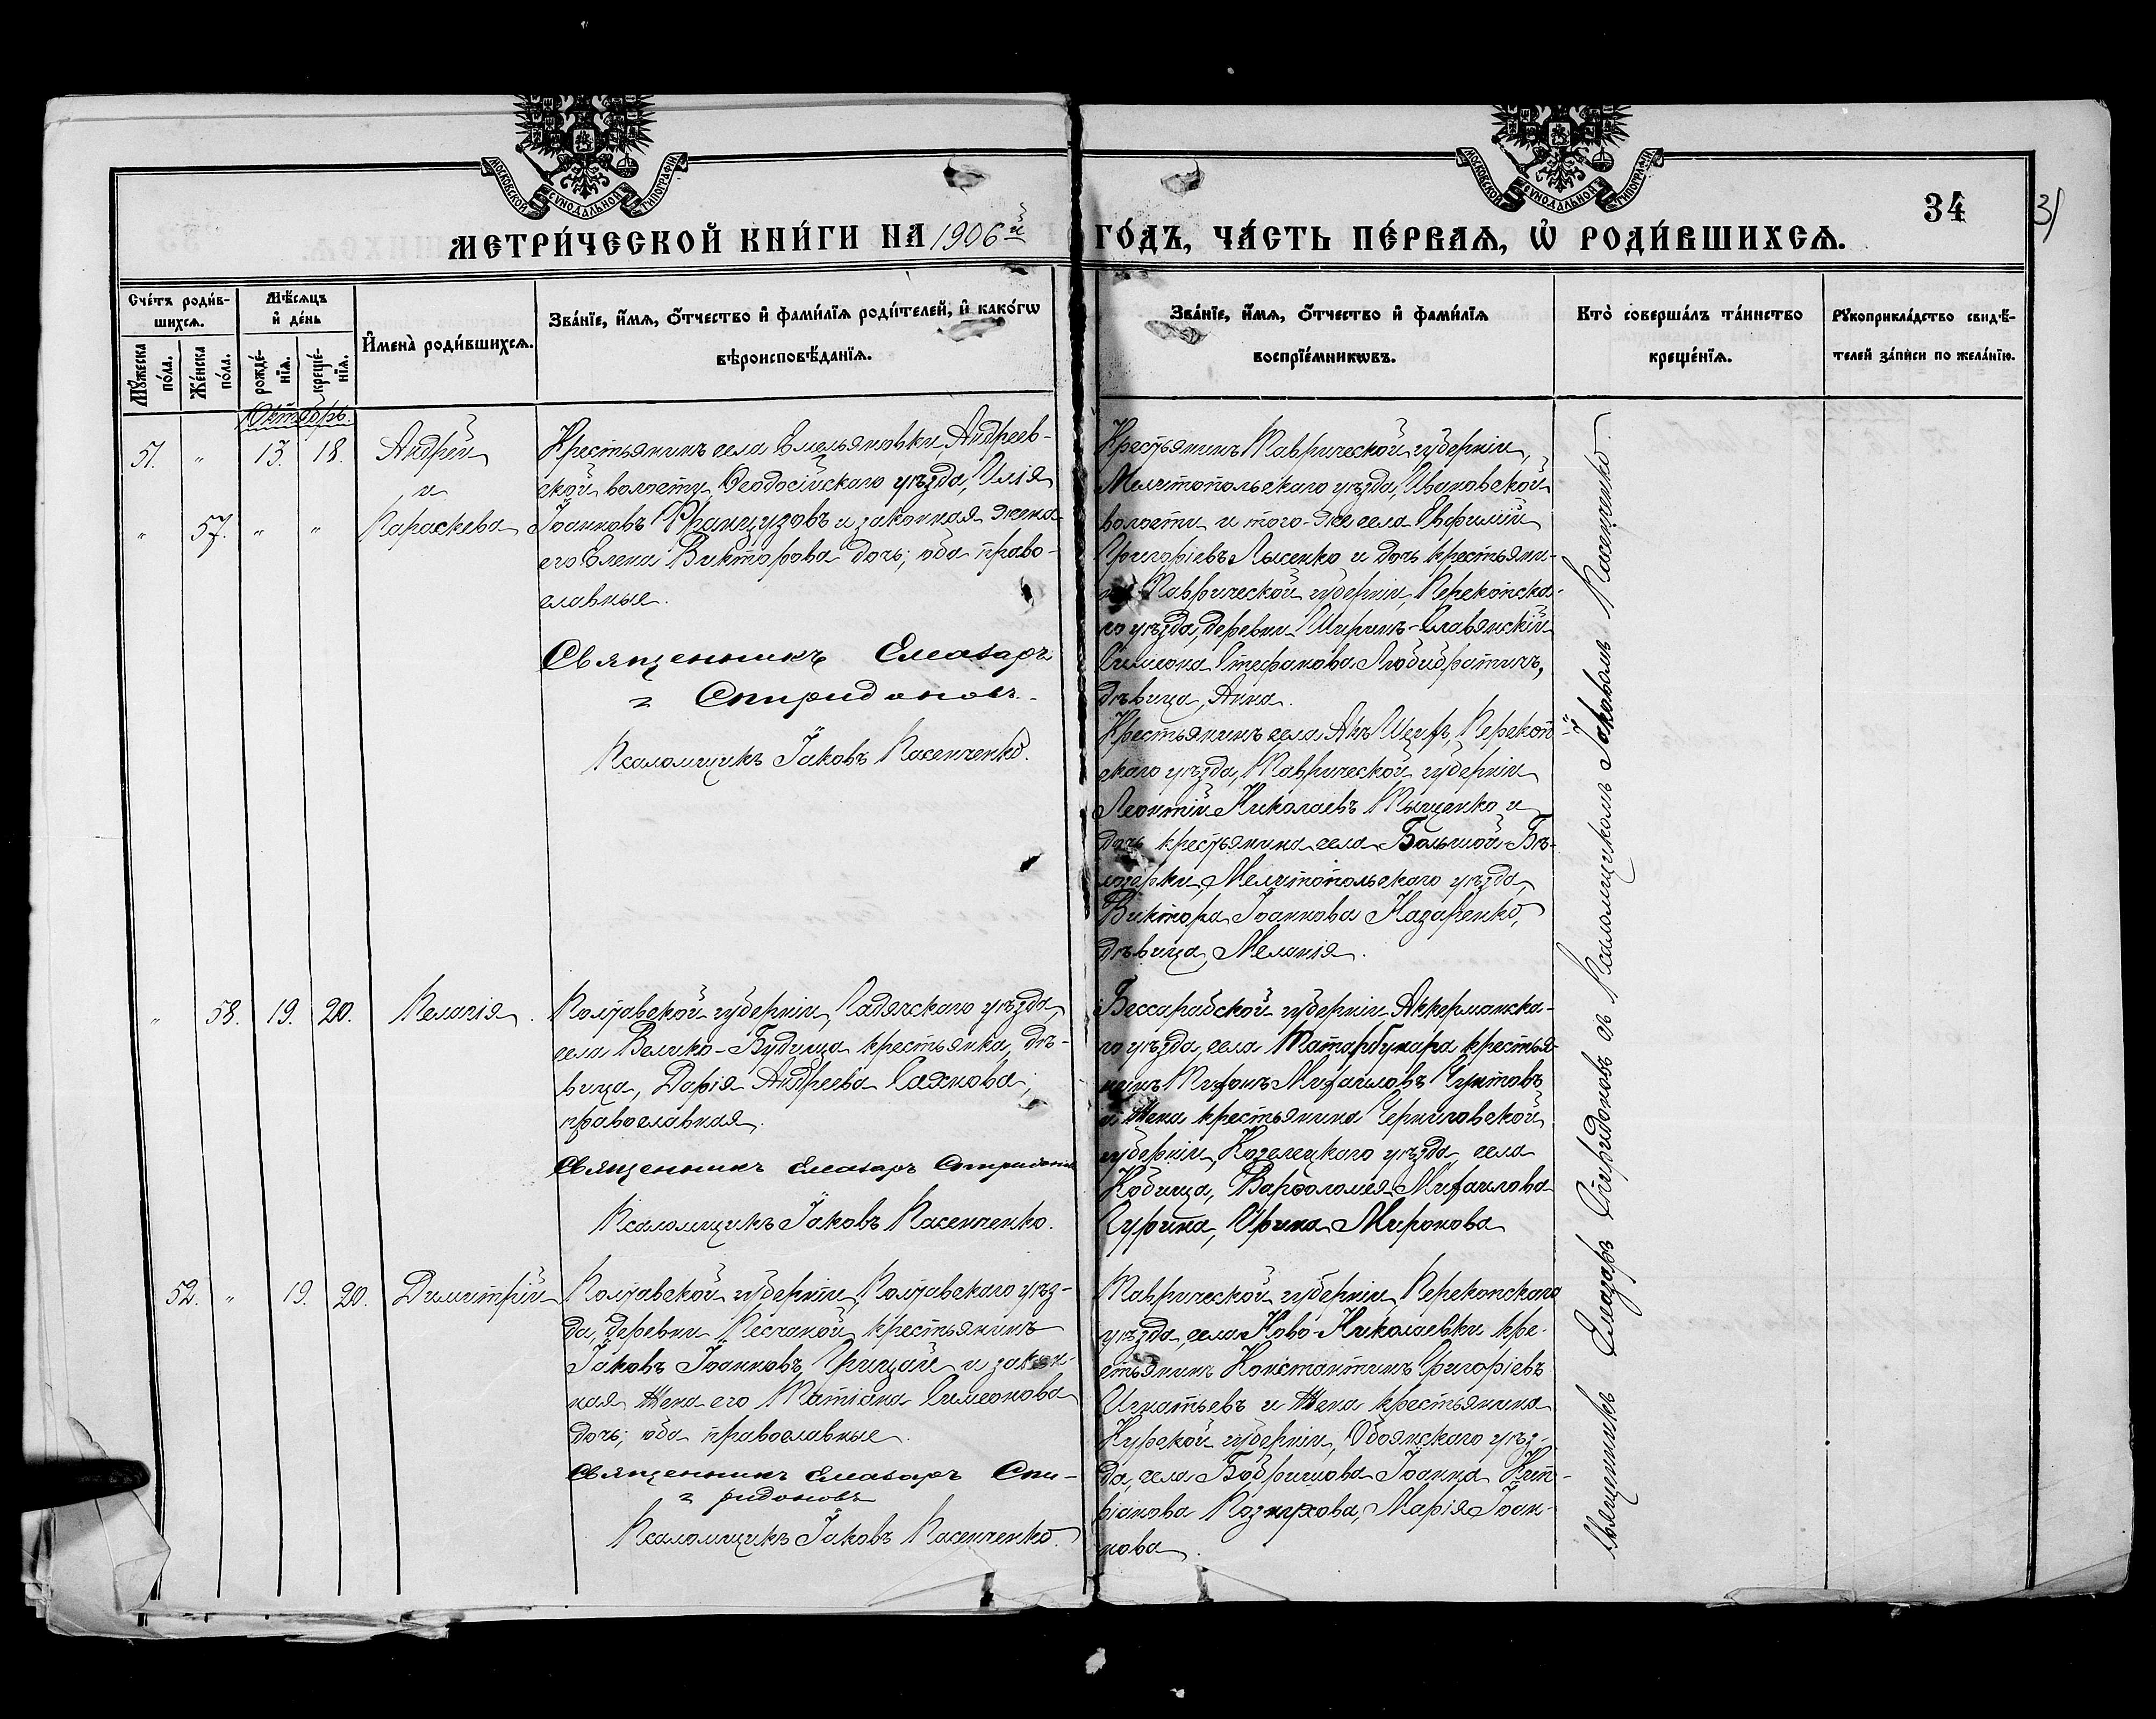 МОСКОВСКОЙ СѴНОДАЛЬНОЙ ТИПОГРАФІИ
МОСКОВСКОЙ СѴНОДАЛЬНОЙ ТИПОГРАФІИ
34
МЕТРИ́ЧЕСКОЙ КНИ́ГИ НА 1906й ГО́ДЪ, ЧА́СТЬ ПЕ́РВАѦ, Ѡ҆ РОДИ́ВШИХСѦ.
Сче́тъ роди́в-
шихсѧ.
Мꙋ́жеска по́ла.
Же́нска по́ла.
Мѣ́сѧцъ
и҆ де́нь
рожде́-
нїѧ.
креще́-
нїѧ.
И҆мена̀ роди́вшихсѧ.
Зва́нїе, и҆́мѧ, ѻ҆́тчество и҆ фами́лїѧ роди́телей, и҆ како́гѡ
вѣроисповѣ́данїѧ.
Зва́нїе, и҆́мѧ, ѻ҆́тчество и҆ фами́лїѧ
воспрїе́мникѡвъ.
Кто̀ соверша́лъ та́инство
креще́нїѧ.
Рꙋкоприкла́дство свидѣ́-
телей за́писи по жела́нїю.
Октябрь.
51. " 13. 18. Андрей
и
" 57. " " Параскева
Крестьянинъ села Емельяновки, Андреев-
ской волости, Ѳеодосійскаго уѣзда, Илія
Іоанновъ Французовъ и законная жена
его Елена Викторова дочь; оба право-
славные.
Священникъ Елеазаръ
Спиридоновъ.
Псаломщикъ Іаковъ Пасенченко.
Крестьянинъ Таврической губерніи,
Мелитопольскаго уѣзда, Ивановской
волости и того-же села Евфимій
Григоріевъ Лысенко и дочь крестьяни-
на Таврической губерніи, Перекопска-
го уѣзда, деревни Ширинъ-Славянскій
Симеона Стефанова Любибратичъ,
дѣвица, Анна.
Крестьянинъ села Акъ Шеихъ, Перекоп-
скаго уѣзда, Таврической губерніи
Леонтій Николаевъ Тыщенко и
дочь крестьянина села Большой-Бѣ-
лозерки, Мелитопольскаго уѣзда,
Виктора Іоаннова Назаренко,
дѣвица, Меланія.
" 58. 19. 20. Пелагія
Полтавской губерніи, Гадячскаго уѣзда,
села Велико-Будища крестьянка, дѣ-
вица, Дарія Андреева Сахнова;
православная.
Священникъ Елеазаръ Спиридоновъ
Псаломщикъ Іаковъ Пасенченко.
Бессарабской губерніи Аккерманска-
го уѣзда, села крестья-
нинъ Михаиловъ
и жена крестьянина Черниговской
губерніи, Козелецкаго уѣзда, села
Кобища, Варѳоломея Михаилова
Ирина Миронова
52. " 19. 20. Димитрій
Полтавской губерніи, Полтавскаго уѣз-
да, деревни Песчаной крестьянинъ
Іаковъ Іоанновъ Грицай и закон-
ная жена его Татіана Симеонова
дочь; оба православные.
Священникъ Елеазаръ Спи-
ридоновъ
Псаломщикъ Іаковъ Пасенченко.
Таврической губерніи, Перекопскаго
уѣзда, села Ново-Николаевки, кре-
стьянинъ Константинъ Григоріевъ
Игнатьевъ и жена крестьянина
Курской губерніи, Обоянскаго уѣз-
да, села Бобрышова Іоанна Кип-
ріанова Марія Іоан-
нова.
Священникъ Елеазаръ Спиридоновъ съ Псаломщикомъ Іаковомъ Пасенченко.